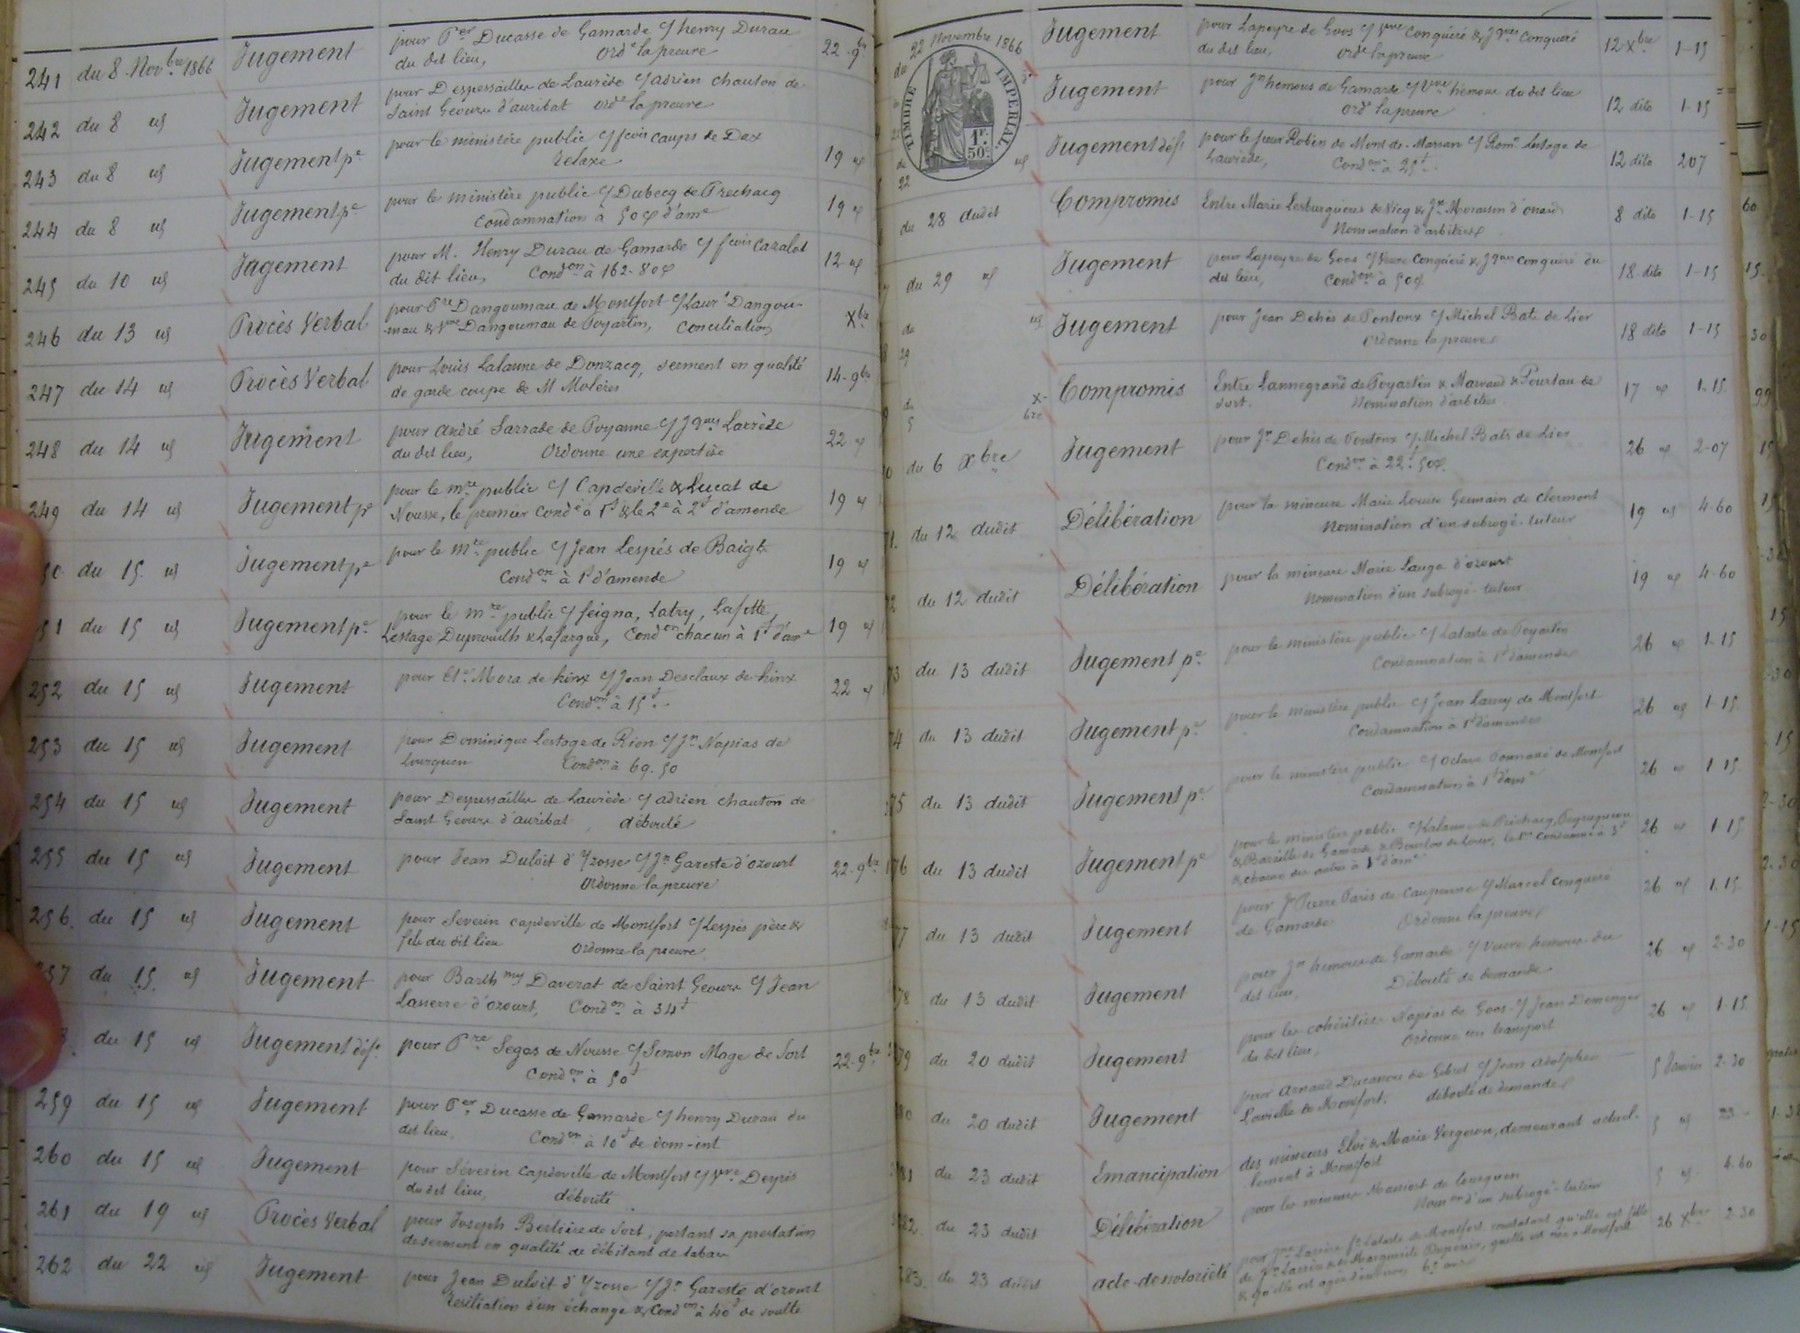 241 du 8 Novbre 1866 Jugement pour Per Ducasse de Gamarde c/ henry Durau 22 9bre
du dit lieu, Orde la preuve
242 du 8 id Jugement pour Despessailles de Laurède c/ adrien chauton de
Saint Geours d'auribat orde la preuve
243 du 8 id Jugement pce pour le ministère public c/ fcois caups de Dax 19 id
relaxe
244 du 8 id Jugement pce pour le ministère public c/ Dubecq de Prechacq 19 id
Condamnation à 50 d'ame
245 du 10 id Jugement pour M. Henry Durau de Gamarde c/ fcois Cazalot 12 id
du dit lieu, Condon à 162-80
246 du 13 id Procès Verbal pour Pre Dangoumau de Montfort c/ Laurt Dangou- Xbre
mau & Vve Dangoumau de Poyartin, Conciliation
247 du 14 id Procès Verbal pour Louis Lalanne de Donzacq, serment en qualité 14-9bre
de garde coupe de M Molères
248 du 14 id Jugement pour andré Sarrade de Poyanne c/ Jques Larrède 22 id
du dit lieu, Ordonne une expertise
249 du 14 id Jugement pce pour le mre public c/ Capdeville & Lucat de 19 id
Nousse, le premier Condé à 1f & le 2e à 2f d'amende
du 15 id Jugement pce pour le mre public c/ Jean Lespés de Baigts 19 id
Condon à 1f d'amende
51 du 15 id Jugement pce pour le mre public c/ feigna, Latry, Lafitte, 19 id
Lestage Duprouilh & Lafargue, Condon chacun à 1f d'ame
252 du 15 id Jugement pour Mora de hinx c/ Jean Desclaux de hinx 22 id
Condon à 15f
253 du 15 id Jugement pour Dominique Lestage de Rion c/ Jn Napias de
Lourquen Condon à 69.50
254 du 15 id Jugement pour Despessailles de Laurède c/ adrien chauton de
Saint Geours d'auribat, débouté
255 du 15 id Jugement pour Jean Duloit d'Yzosse c/ Jn Gareste d'ozourt 22-9bre
Ordonne la preuve
256 du 15 id Jugement pour Severin capdeville de Montfort c/ Lespés père &
fils du dit lieu ordonne la preuve
257 du 15 id Jugement pour Barthmy Daverat de Saint Geours c/ Jean
Lasserre d'ozourt, Condon à 34f
du 15 id Jugement déft pour Pre Segas de Nousse c/ Simon Mage de Sort 22-9bre
Condon à 50f
259 du 15 id Jugement pour Per Ducasse de Gamarde c/ henry Durau du
dit lieu, Condon à 10f de dom-int
260 du 15 id Jugement pour Séverin Capdeville de Montfort c/ Vve Despés
du dit lieu, débouté
261 du 19 id Procès Verbal pour Joseph Berlière de Sort, portant sa prestation
de serment en qualité de débitant de tabac
262 du 22 id Jugement pour Jean Duloit d'Yzosse c/ Jn Gareste d'ozourt
Resiliation d'un échange & Condon à 40f de soulte
du 22 Novembre 1866 Jugement pour Lapeyre de Goos c/ Vve Conquéré & Jques Conquéré 12 Xbre 1-15
du dit lieu, orde la preuve
TIMBRE IMPERIAL
1F.
50c.
Jugement pour Jn hemous de Gamarde c/ Vve hemous du dit lieu 12 dito 1-15
Orde la preuve
22 id Jugement déft pour le sieur Robin de Mont-de-Marsan c/ Rom Lestage de 12 dito 207
Laurède, Condon à 25f
du 28 dudit Compromis Entre Marie Lesburguères de Vicq & Jn Moraison d'onard 8 dito 1-15
Nomination d'arbitres
du 29 id Jugement pour Lapeyre de Goos c/ Veuve Conquéré & Jques Conquéré du 18 dito 1-15
dit lieu, Condon à 50
du 29 id Jugement pour Jean Dehès de Pontonx c/ Michel Bats de Lier 18 dito 1-15
Ordonne la preuve
du 5 Xbre Compromis Entre Lannegrand de Poyartin & Marsaud & Pourtau de 17 id 1-15
Sort. Nomination d'arbitres
du 6 Xbre Jugement pour Jn Dehès de Pontonx c/ Michel Bats de Lier 26 id 2-07
Condon à 22f 50
du 12 dudit Délibération pour la mineure Marie Louise Germain de Clermont 19 id 4-60
Nomination d'un subrogé-tuteur
du 12 dudit Délibération pour la mineure Marie Lauga d'ozourt 19 id 4-60
Nomination d'un subrogé-tuteur
73 du 13 dudit Jugement pce pour le ministère public c/ Lataste de Poyartin 26 id 1-15
Condamnation à 1f d'amende
74 du 13 dudit Jugement pce pour le ministère public c/ Jean Lauray de Montfort 26 id 1-15
Condamnation à 1f d'amende
75 du 13 dudit Jugement pce pour le ministère public c/ Octave de Montfort 26 id 1-15
Condamnation à 1f d'ame
76 du 13 dudit Jugement pce pour le ministère public c/ Lalanne de Préchacq, 26 id 1-15
& Bareille de Gamarde & de Louer, le 1er Condamné à 3f
& chacun des autres à 1f d'ame
77 du 13 dudit Jugement pour Jn Pierre Paris de Caupenne c/ Marcel Conquéré 26 id 1-15
de Gamarde Ordonne la preuve
78 du 13 dudit Jugement pour Jn hemous de Gamarde c/ Veuve hemous du 26 id 2-30
dit lieu, Débouté de demande
79 du 20 dudit Jugement pour les cohéritiers Napias de Goos c/ Jean Domenger 26 id 1-15
du dit lieu, Ordonne un transport
80 du 20 dudit Jugement pour Arnaud Ducamou de Gibret c/ Jean adolphe 5 Janvier 2-30
Laville de Montfort. débouté de demande
81 du 23 dudit Emancipation des mineurs Eloi & Marie Vergeron, demeurant actuel- 5 id 23-
lement à Montfort
282 du 23 dudit Délibération pour les mineurs Maniort de Lourquen 5 id 4-60
Nomon d'un subrogé-tuteur
283 du 23 dudit acte de notoriété pour Lassère Lataste de Montfort constatant qu'elle est fille 26 Xbre 2-30
de Lassère & de Marguerite Duperrin, qu'elle est née à Montfort
& qu'elle est agée d'environ 65 ans